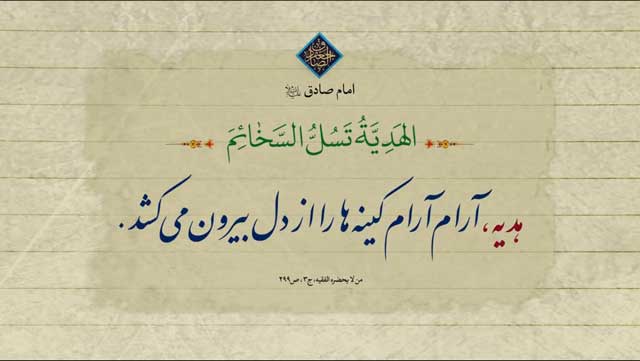 امام صادق علیه‌السلام
الهَدِيَّةُ تَسُلُّ السَّخائِمَ
هدیه، آرام آرام کینه ها را از دل بیرون می کشد.
من لا یحضره الفقیه، ج۳، ص۲۹۹